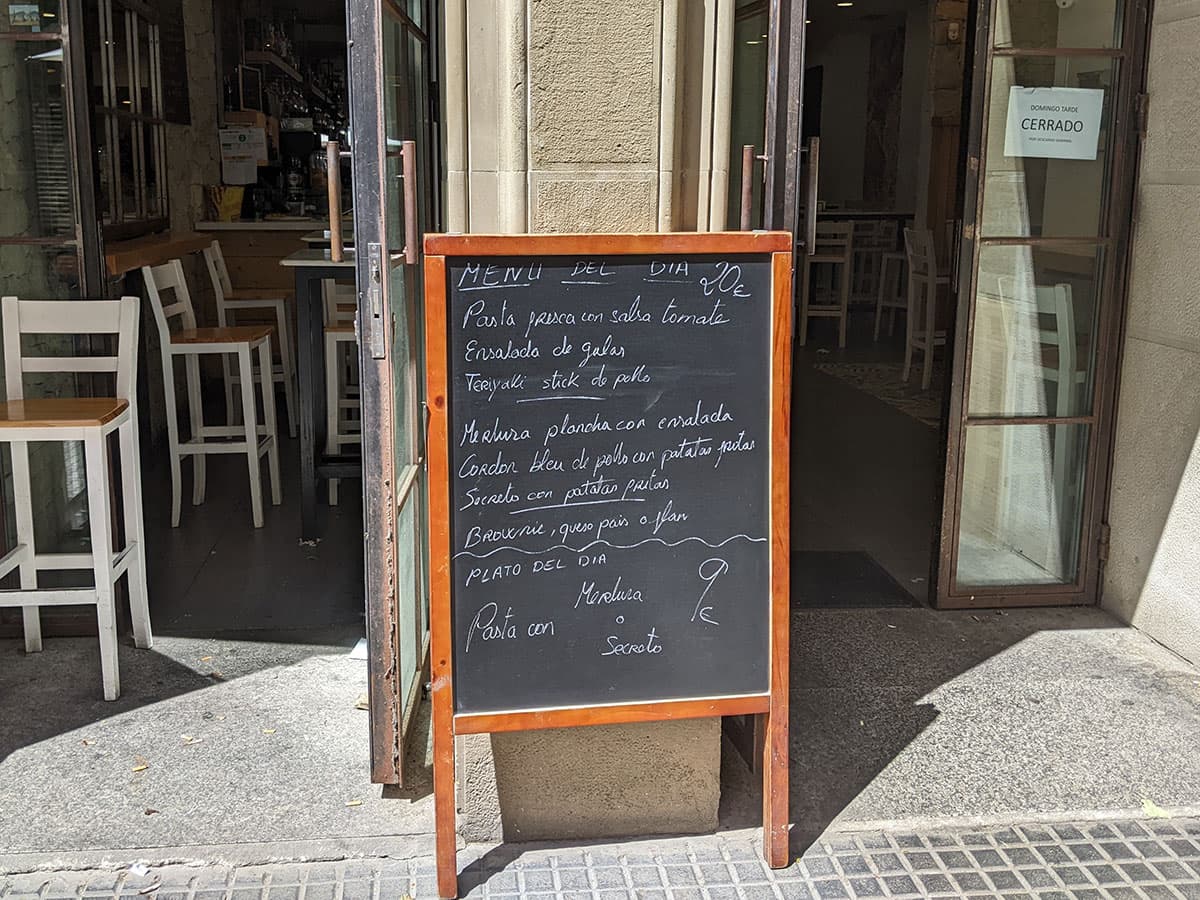 MENU DEL DIA 20€
Pasta fresca con salsa tomate
Ensalada de gulas
Teriyaki stick de pollo
Merluza plancha con ensalada
Cordon bleu de pollo con patatas fritas
Secreto con patatas fritas
BROWNIE, queso pais o flan
PLATO DEL DIA 9€
Pasta con Merluza
o
Secreto
DOMINGO TARDE
CERRADO